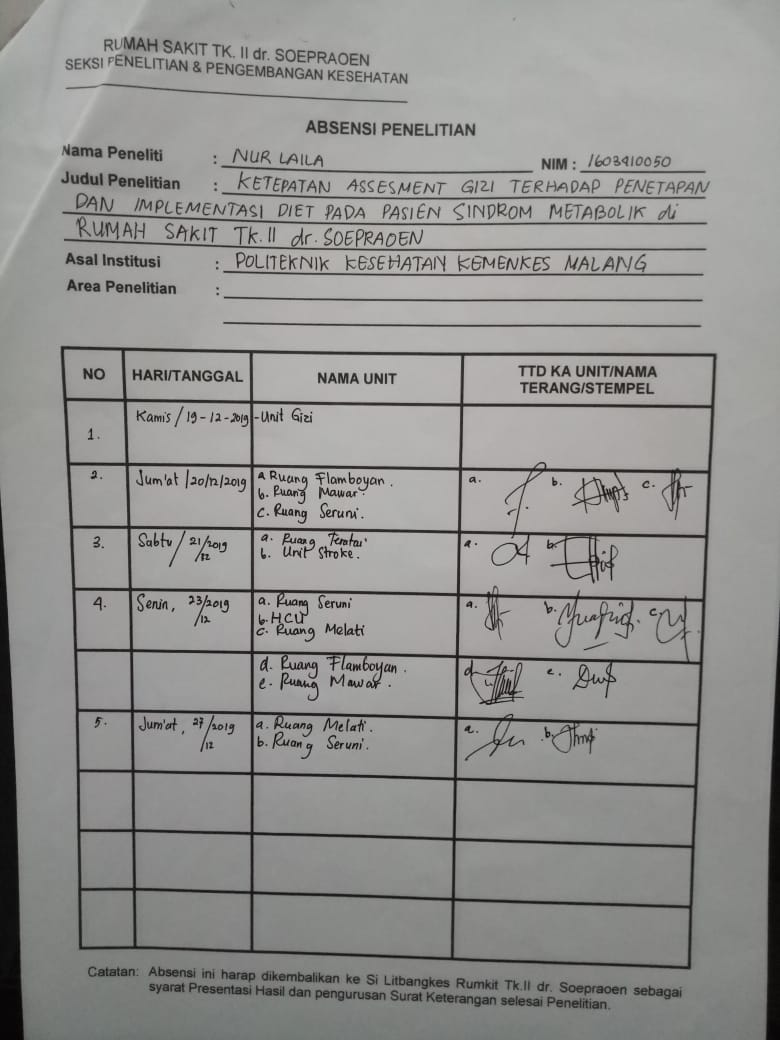 RUMAH SAKIT TK. II dr. SOEPRAOEN
SEKSI PENELITIAN & PENGEMBANGAN KESEHATAN
ABSENSI PENELITIAN
Nama Peneliti : NUR LAILA NIM : 1603410050
Judul Penelitian : KETEPATAN ASSESMENT GIZI TERHADAP PENETAPAN
DAN IMPLEMENTASI DIET PADA PASIEN SINDROM METABOLIK di
RUMAH SAKIT TK. II dr. SOEPRAOEN
Asal Institusi : POLITEKNIK KESEHATAN KEMENKES MALANG
Area Penelitian :
NO HARI/TANGGAL NAMA UNIT TTD KA UNIT/NAMA TERANG/STEMPEL
1. Kamis / 19-12-2019 - Unit Gizi
2. Jum'at / 20/12/2019 a Ruang Flamboyan. a. b. c.
b. Ruang Mawar.
c. Ruang Seruni.
3. Sabtu / 21/2019 /12 a. Ruang Teratai a. b.
b. Unit Stroke.
4. Senin, 23/2019 /12 a. Ruang Seruni a. b. c.
b. HCU
c. Ruang Melati
d. Ruang Flamboyan. d. e.
e. Ruang Mawar.
5. Jum'at, 27/2019 /12 a. Ruang Melati. a. b.
b. Ruang Seruni.
Catatan: Absensi ini harap dikembalikan ke Si Litbangkes Rumkit Tk.II dr. Soepraoen sebagai
syarat Presentasi Hasil dan pengurusan Surat Keterangan selesai Penelitian.